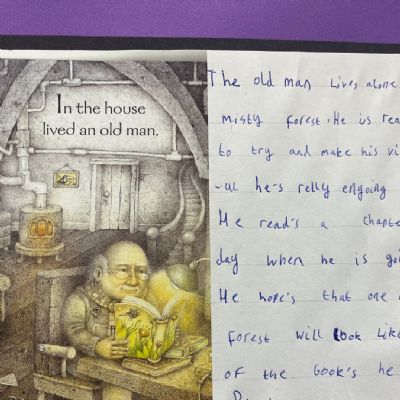 In the house
lived an old man.
The old man lives alone
misty forest. He is rea
to try and make his vi
-ul he's relly engoying
He read's a chapte
day when he is goi
He hope's that one
forest will look like
of the book's he